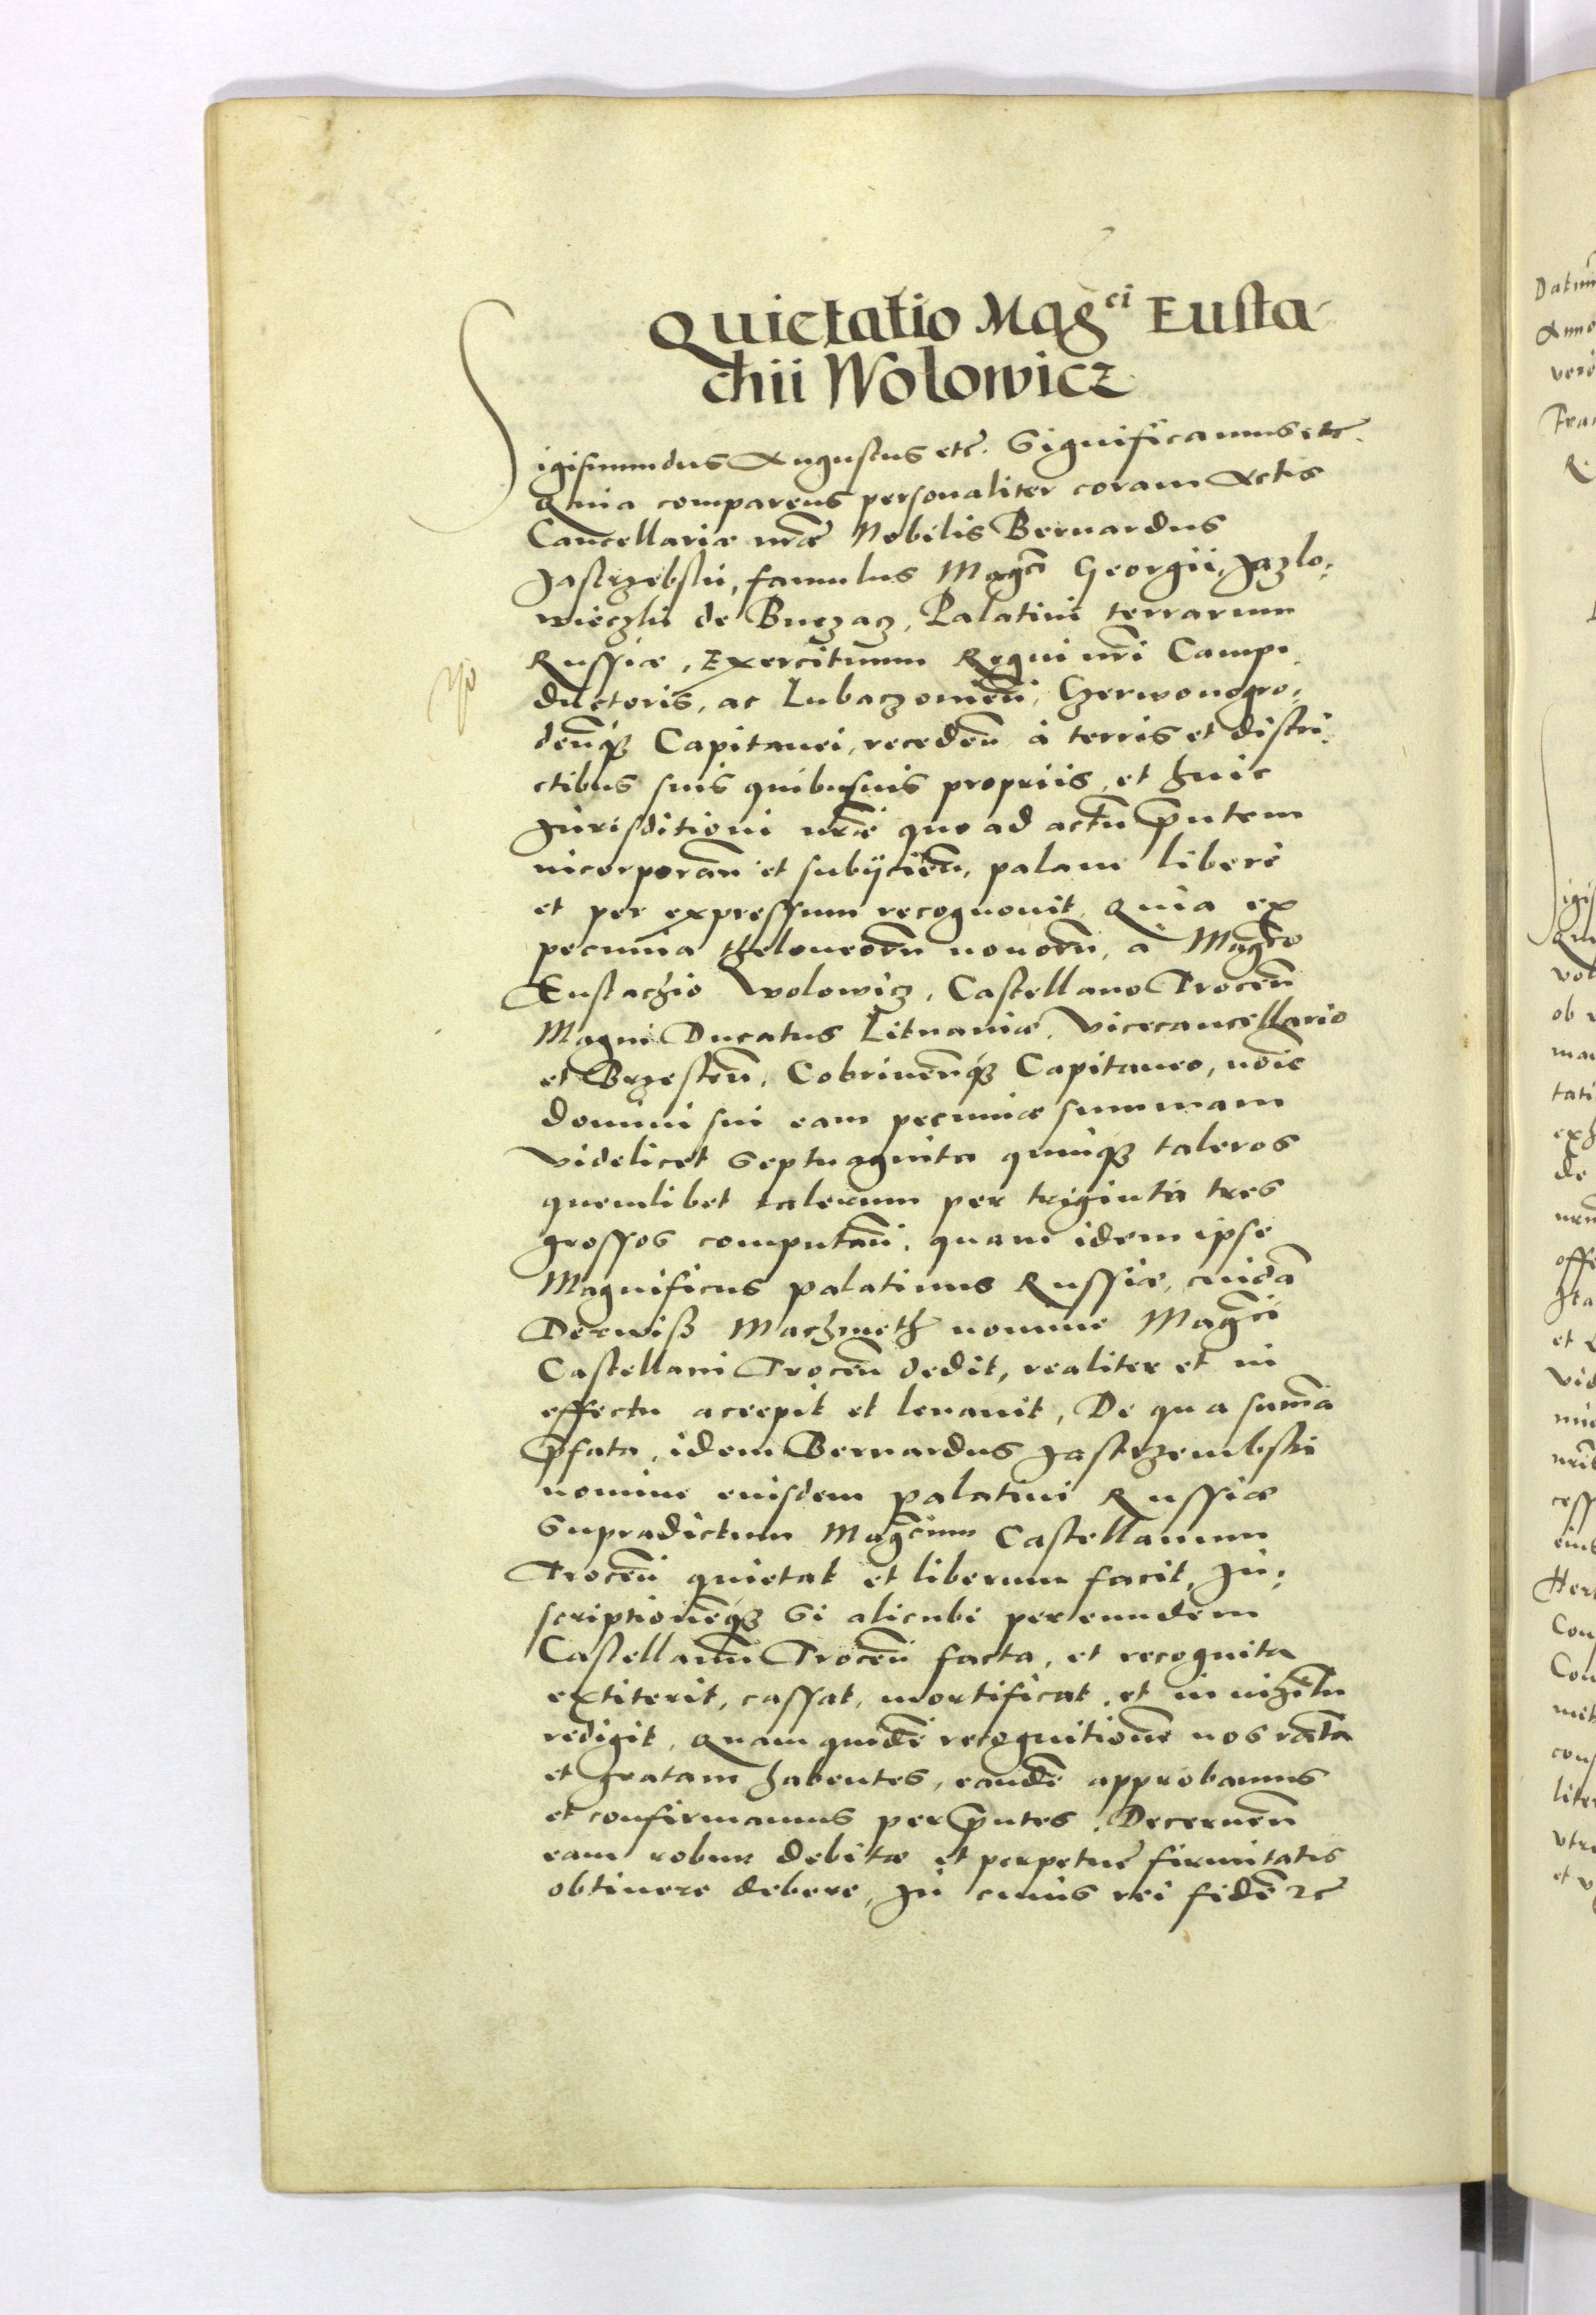 Quietatio Mag^ci Eusta-
chii Wolowicz
Sigismundus Augustus etc. Significamus etc.
Quia comparens personaliter coram Actis
Cancellariæ nr̃æ Nobilis Bernardus
Jastrzebski, famulus Mag̃ci Georgii, Jazlo:
wieczki de Buczacz, Palatini terrarum
Russiæ, Exercituum Regni nr̃i Campi
ductoris, ac Lubaczowieñ, Czerwonogro:
deñq̃ Capitanei, recedeñ à terris et distri:
ctibus suis quibusuis propriis, et huic
Jurisditioni nr̃æ quo ad actũ p̃ntem
incorporañ et subijcieñ, palam liberè
et per expressum recognouit, Quia ex
pecunia theloneorũ nouorũ, à Mag̃co
Eustachio Wolowicz, Castellano Troceñ
Magni Ducatus Lituaniæ, Vicecancellario
et Brzesteñ, Cobrineñq̃ Capitaneo, nõie
domini sui eam pecuniæ summam
videlicet Septuaginta quinq̃ taleros
quemlibet talerum per triginta tres
grossos computañ, quam idem ipse
Magnificus palatinus Russiæ, cuidã
Derwiß Machmeth nomine Mag̃ci
Castellani Troceñ dedit, realiter et in
effectu accepit et leuauit, De qua sum̃a
p̃fata, idem Bernardus Jastrzembski
nomine eiusdem palatini Russiæ
Supradictum Mag̃cum Castellanum
Troceñ quietat et liberum facit, In:
scriptionẽq̃ Si alicubi per eundem
Castellanũ Troceñ facta, et recognita
extiterit, cassat, mortificat, et in nihilũ
redigit, Quam quidẽ recognitionẽ nos ratã
et gratam habentes, eandẽ approbamus
et confirmamus per p̃ntes, Decerneñ
eam robur debitæ et perpetuæ firmitatis
obtinere debere, In cuius rei fidẽ etc